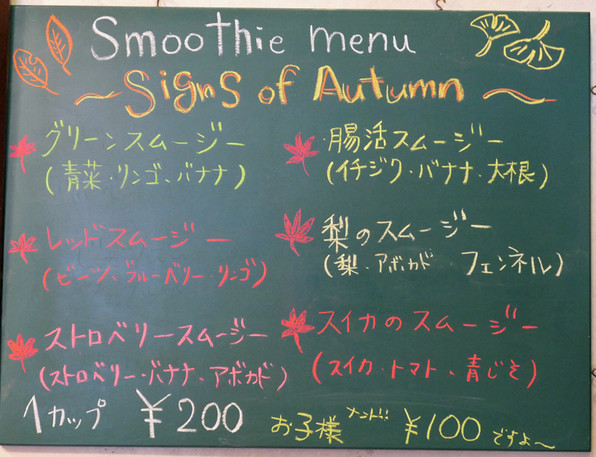 Smoothie menu
～Signs of Autumn～
グリーンスムージー
(青菜・リンゴ、バナナ)
レッドスムージー
(ビーツ、ブルーベリー・リンゴ)
ストロベリースムージー
(ストロベリー・バナナ、アボカド)
腸活スムージー
(イチジク・バナナ、大根)
梨のスムージー
(梨・アボカド フェンネル)
スイカのスムージー
(スイカ・トマト、青じそ)
1カップ ￥200
お子様 ￥100ですよ～